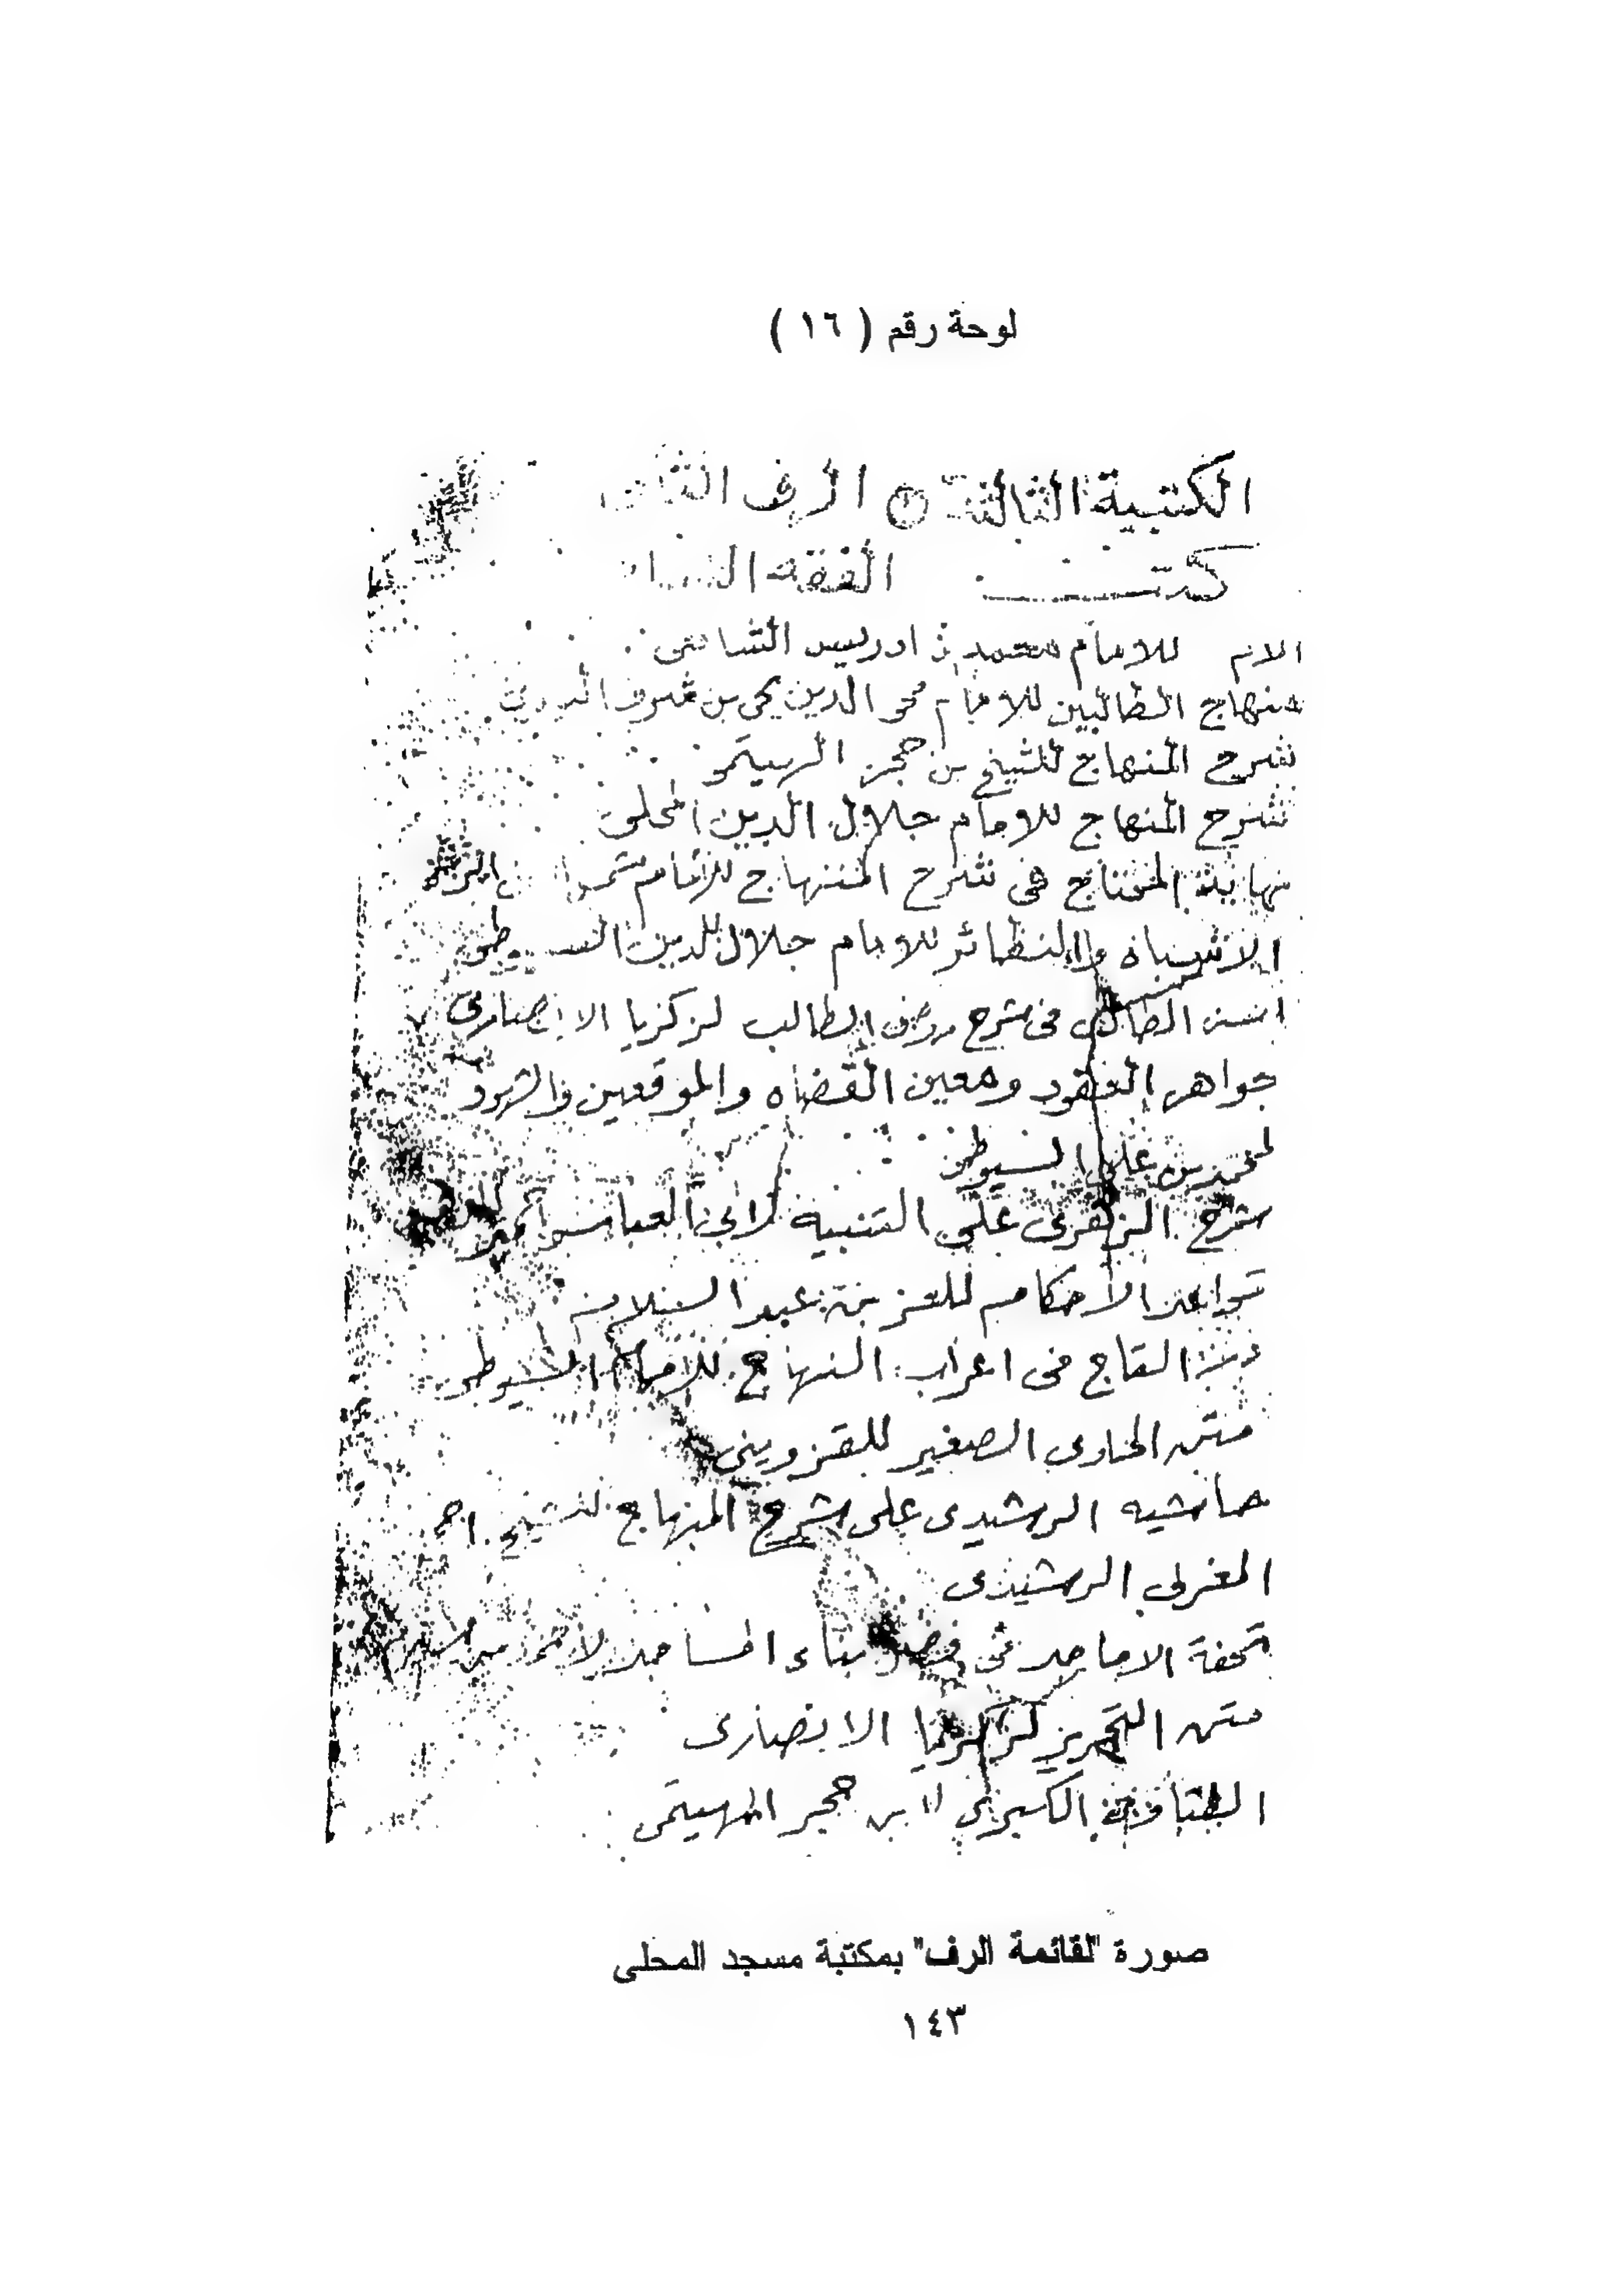 لوحة رقم ( ١٦ )
الكتبية الثالثة ① الرف
كتب الفقه
الام للامام محمد بن ادريس الشافعى
منهاج الطالبين للامام محى الدين يحى بن شرف النووى
شرح المنهاج للشيخ بن حجر الهيتمى
شرح المنهاج للامام جلال الدين المحلى
نهاية المحتاج فى شرح المنهاج للامام شمس
الاشباه والنظائر للامام جلال الدين السيوطى
اسنى المطالب فى شرح روض الطالب لزكريا الانصارى
جواهر العقود ومعين القضاه والموقعين والشهود
لمحمد بن على السيوطى
شرح على التنبيه لابى العباس احمد
قواعد الأحكام للعز بن عبد السلام
التاج فى اعراب المنهاج للامام السيوطى
متن الحاوى الصغير للقزوينى
حاشيه الرشيدى على شرح المنهاج للشيخ احمد
المغربى الرشيدى
تحفة الاماجد فى فضل بناء المساجد لاحمد
متن التحرير لزكريا الانصارى
الفتاوى الكبرى لابن حجر الهيتمى
صورة "لقائمة الرف" بمكتبة مسجد المحلى
١٤٣